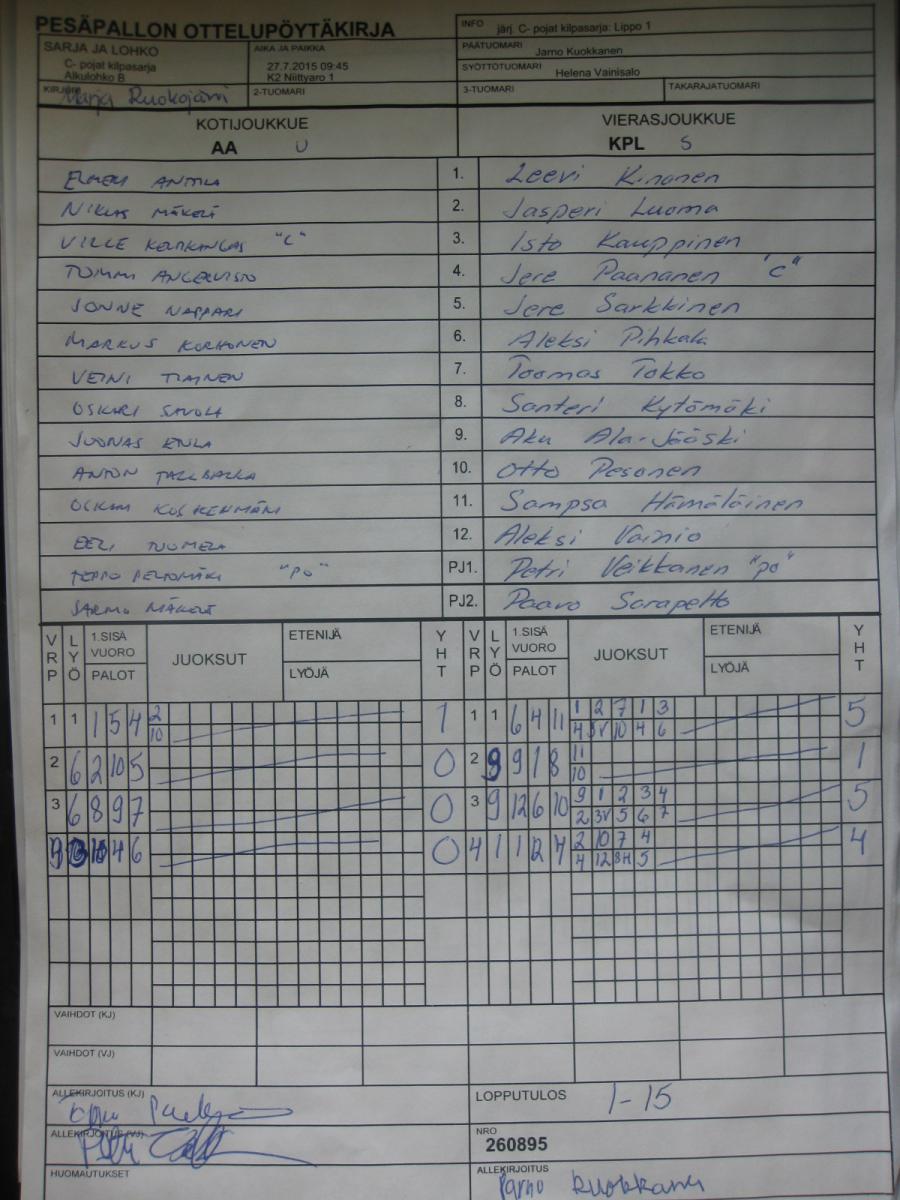 PESÄPALLON OTTELUPÖYTÄKIRJA
INFO järj. C- pojat kilpasarja: Lippo 1
SARJA JA LOHKO
C- pojat kilpasarja
Alkulohko B
AIKA JA PAIKKA
27.7.2015 09:45
K2 Niittyaro 1
PÄÄTUOMARI Jarno Kuokkanen
SYÖTTÖTUOMARI Helena Vainisalo
KIRJURI Marja Ruokojärvi
2-TUOMARI
3-TUOMARI
TAKARAJATUOMARI
KOTIJOUKKUE
AA U
VIERASJOUKKUE
KPL S
ELMERI ANTTILA 1. Leevi Kinonen
NIKLAS MÄKELÄ 2. Jasperi Luoma
VILLE "C" 3. Isto Kauppinen
TOMMI 4. Jere Paananen "C"
JONNE NAPPARI 5. Jere Sarkkinen
MARKUS KORHONEN 6. Aleksi Pihkala
VEINI TIAINEN 7. Toomas Tokko
OSKARI SAVOLA 8. Santeri Kytömäki
JOONAS 9. Aku Ala-Jääski
ANTON 10. Otto Pesonen
KOSKENMÄKI 11. Sampsa Hämäläinen
EELI TUOMELA 12. Aleksi Vainio
TEPPO PELTOMÄKI "PO" PJ1. Petri Veikkanen "po"
JARMO MÄKELÄ PJ2. Paavo Sarapelto
VRP LYÖ 1.SISÄ VUORO PALOT JUOKSUT ETENIJÄ LYÖJÄ YHT VRP LYÖ 1.SISÄ VUORO PALOT JUOKSUT ETENIJÄ LYÖJÄ YHT
1 1 1 5 4 2 1 1 1 6 4 11 1 2 7 1 3 5
10 4 3V 10 4 6
2 6 2 10 5 0 2 9 9 1 8 11 1
10
3 6 8 9 7 0 3 9 12 6 10 9 1 2 3 4 5
2 3V 5 6 7
4 6 0 4 1 1 2 7 2 10 7 4 4
4 12 8H 5
VAIHDOT (KJ)
VAIHDOT (VJ)
ALLEKIRJOITUS (KJ)
LOPPUTULOS 1-15
ALLEKIRJOITUS (VJ)
NRO
260895
HUOMAUTUKSET
ALLEKIRJOITUS Jarno Kuokkanen